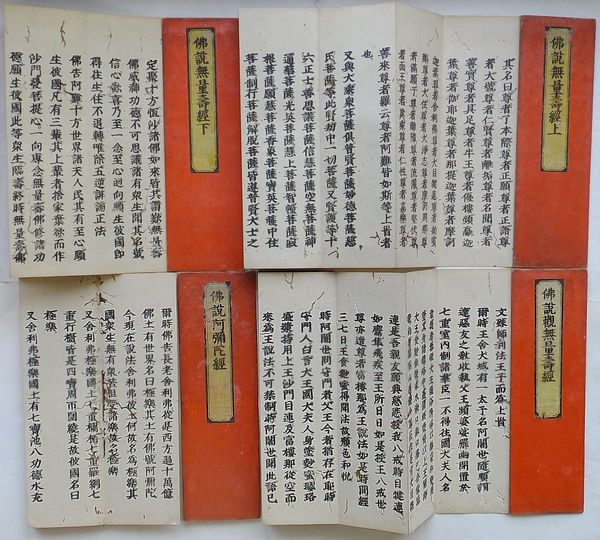 佛說無量壽經上
其名曰尊者了本際尊者正願尊者正語尊
者大號尊者仁賢尊者離垢尊者名聞尊者
善實尊者具足尊者牛王尊者優樓頻蠡迦
葉尊者伽耶迦葉尊者那提迦葉尊者摩訶
迦葉尊者舍利弗尊者大目揵連尊者劫賓
那尊者大住尊者大淨志尊者摩訶周那尊
者滿願子尊者離障尊者流灌尊者堅伏尊
者面王尊者異乘尊者仁性尊者嘉樂尊者
善來尊者羅云尊者阿難皆如斯等上首者
也
又與大乘衆菩薩俱普賢菩薩妙德菩薩慈
氏菩薩等此賢劫中一切菩薩又賢護等十
六正士善思議菩薩信慧菩薩空無菩薩神
通華菩薩光英菩薩慧上菩薩智幢菩薩寂
根菩薩願慧菩薩香象菩薩寶英菩薩中住
菩薩制行菩薩解脫菩薩皆遵普賢大士之
佛說無量壽經下
定聚十方恒沙諸佛如來皆共讚歎無量壽
佛威神功德不可思議諸有衆生聞其名號
信心歡喜乃至一念至心迴向願生彼國即
得往生住不退轉唯除五逆誹謗正法
佛告阿難十方世界諸天人民其有至心願
生彼國凡有三輩其上輩者捨家棄欲而作
沙門發菩提心一向專念無量壽佛修諸功
德願生彼國此等衆生臨壽終時無量壽佛
佛說觀無量壽經
文殊師利法王子而爲上首
爾時王舍大城有一太子名阿闍世隨順調
達惡友之教收執父王頻婆娑羅幽閉置於
七重室内制諸群臣一不得往國大夫人名
連是吾親友願興慈悲授我八戒時目揵連
如鷹隼飛疾至王所日日如是授王八戒世
尊亦遣尊者富樓那爲王說法如是時間經
三七日王食麨蜜得聞法故顏色和悅
時阿闍世問守門者父王今者猶存在耶時
守門人白言大王國大夫人身塗麨蜜瓔珞
盛漿持用上王沙門目連及富樓那從空而
來爲王說法不可禁制時阿闍世聞此語已
佛說阿彌陀經
爾時佛告長老舍利弗從是西方過十萬億
佛土有世界名曰極樂其土有佛號阿彌陀
今現在說法舍利弗彼土何故名爲極樂其
國衆生無有衆苦但受諸樂故名極樂
又舍利弗極樂國土七重欄楯七重羅網七
重行樹皆是四寶周帀圍繞是故彼國名曰
極樂
又舍利弗極樂國土有七寶池八功德水充